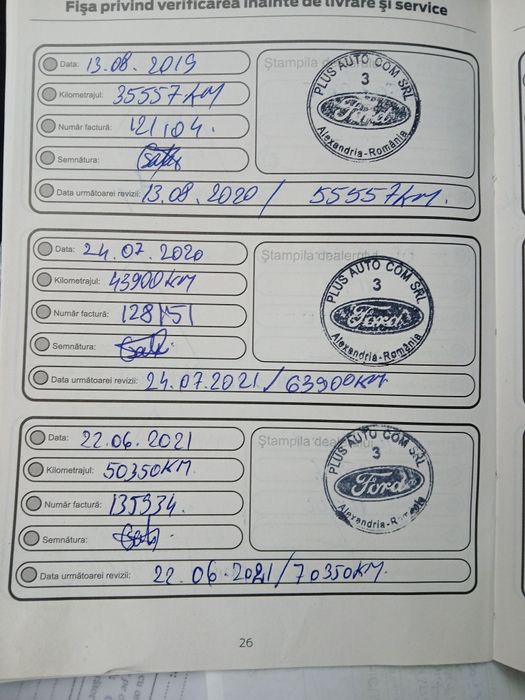 Fișa privind verificarea înainte de livrare și service
Data: 13.08.2019
Kilometrajul: 35557 KM
Număr factură: 121104.
Semnătura:
Data următoarei revizii: 13.08.2020 / 55557 KM.
Ștampila dealerului
PLUS AUTO COM SRL
3
Ford
Alexandria-România
Data: 24.07.2020
Kilometrajul: 43900 KM
Număr factură: 128151
Semnătura:
Data următoarei revizii: 24.07.2021 / 63900 KM.
Ștampila dealerului
PLUS AUTO COM SRL
3
Ford
Alexandria-România
Data: 22.06.2021
Kilometrajul: 50350 KM.
Număr factură: 135934.
Semnătura:
Data următoarei revizii: 22.06.2021 / 70350 KM.
Ștampila dealerului
PLUS AUTO COM SRL
3
Ford
Alexandria-România
26